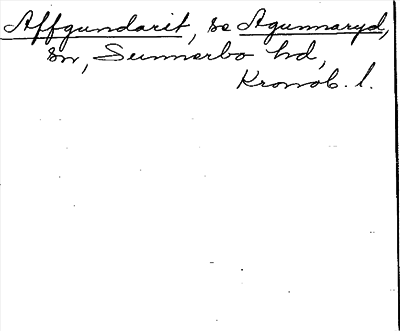 Affgundarit, se Agunnaryd,
sn, Sunnerbo hd,
Kronob. l.